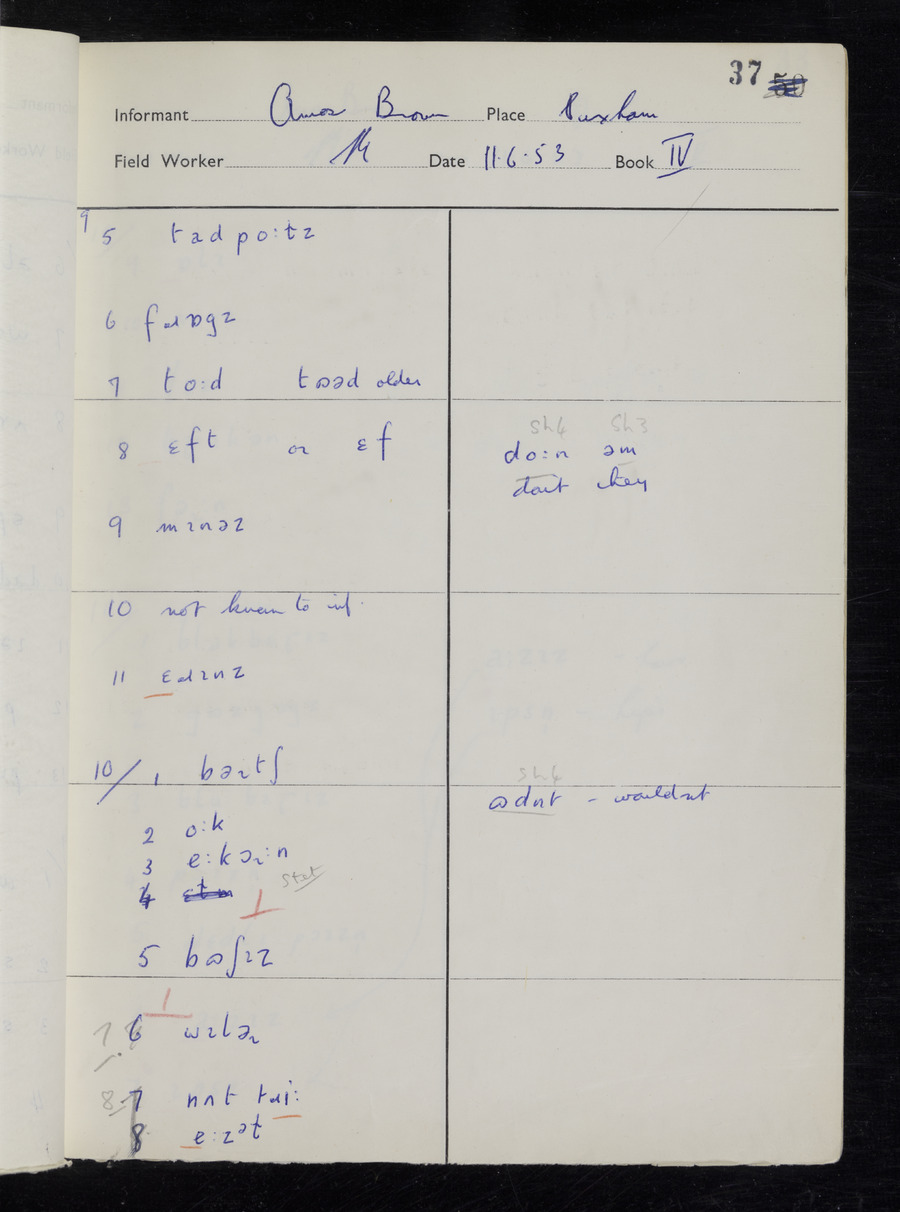 37 50
Informant Amos Brown Place Buxham
Field Worker Date 11·6·53 Book IV
9
5 tadpo:tz
6 fɹɒgz
7 to:d tɷəd older
8 ɛft or ɛf
sh4 sh3
do:n əm
don't they
9 mɪnəz
10 not known to inf.
11 ɛɹɪnz
10/1 bəɹtʃ
sh4
ɷdnt - wouldnt
2 o:k
3 e:kəɹ:n
4 ɛtm stet
5 bɷʃɪz
7 6 wɪlə
8 7 nʌt tɹi:
8 e:zət